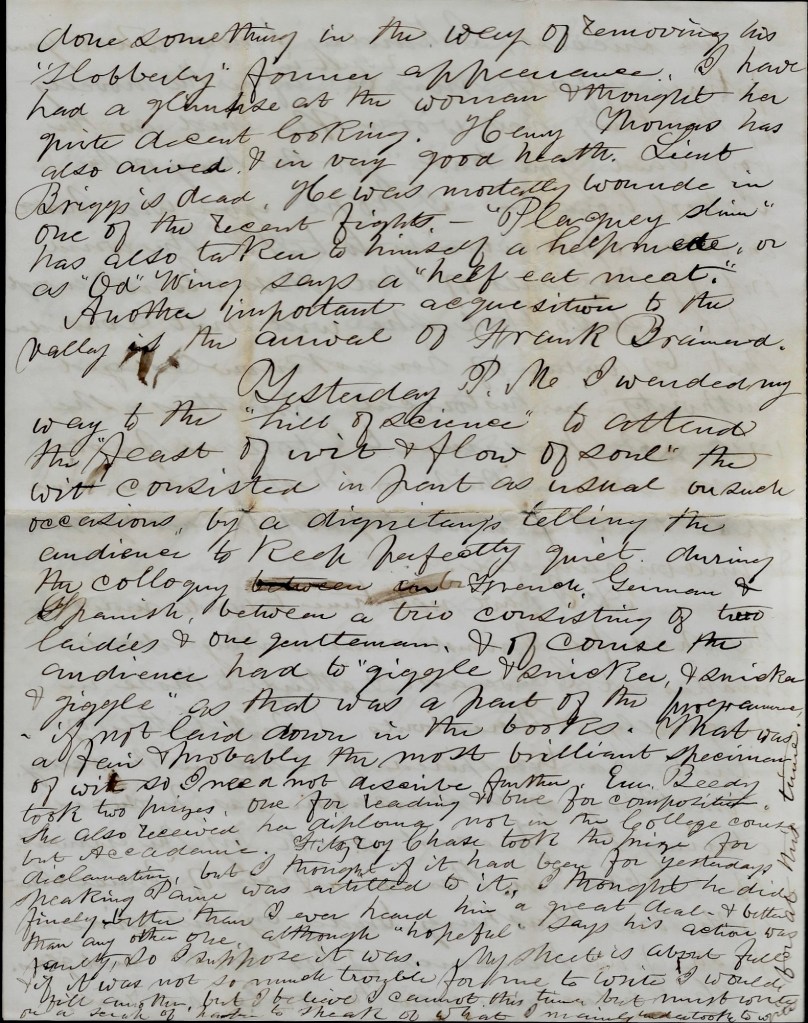 done something in the way of removing his
"slobberly" former appearance. I have
had a glimpse at the woman & thought her
quite decent looking. Henry Thomas has
also arived, & in very good heath. Lieut
Briggs is dead. He was mortally wounde in
one of the recent fights. – "Plaguey slim"
has also taken to himself a helpmete, or
as "Od" Wing says a "help eat meat."
Another important acquisition to the
valley is the arrival of Frank Brainerd.
Yesterday P. M. I wended my
way to the "hill of science" to attend
the "feast of wit & flow of soul" the
wit consisted in part as usual on such
occasions, by a dignitary's telling the
audience to keep perfectly quiet during
the colloquy between in French, German &
Spanish, between a trio consisting of two
laidies & one gentleman. & of course the
audience had to "giggle & snicker, & snicker
& giggle" as that was a part of the programme,
- if not laid down in the books. That was
a fair & probably the most brilliant specimen
of wit so I need not describe further. Em. Beedy
took two prizes, one for reading & one for composition
She also received her diploma not in the College course
but Accademic. Fitzroy Chase took the prize for
diclamation, but I thought if it had been for yesterdays
speaking Paine was entitled to it. I thought he did
finely better than I ever heard him a great deal & better
than any other one, although "hopeful" says his action was
faulty, so I suppose it was. My sheet is about full
& if it was not so much trouble for me to write I would
fill another, but I believe I cannot this time but must write
on a scrap of paper to speak of what I mainly undertook to write
for at this time.